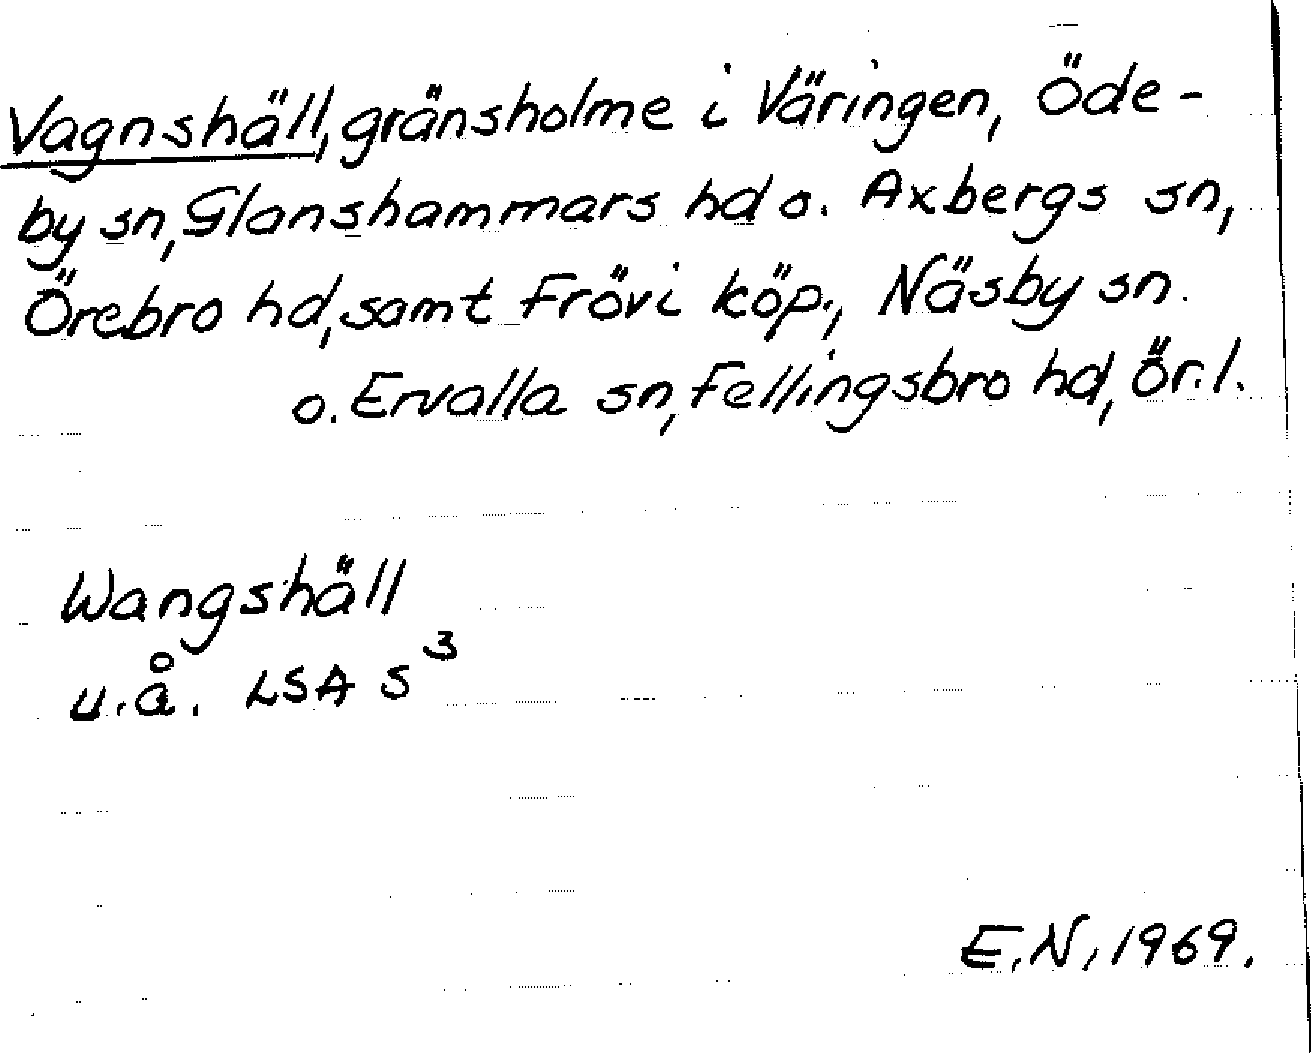 Vagnshäll, gränsholme i Väringen, Öde-
by sn, Glanshammars hd o. Axbergs sn,
Örebro hd, samt Frövi köp., Näsby sn.
o. Ervalla sn, Fellingsbro hd, Ör. l.
Wangshäll
u.å. LSA S³
E.N, 1969.